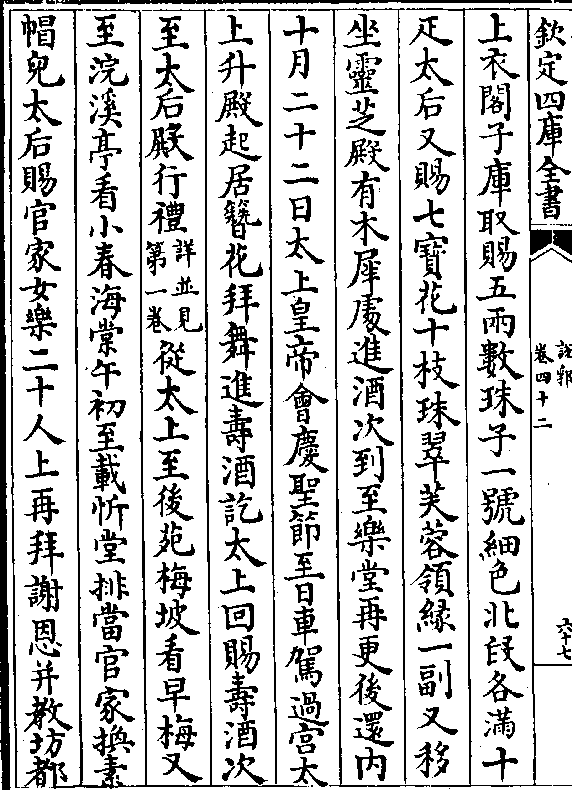 欽定四庫全書
說郛
卷四十二
六十七
上衣閣子庫取賜五兩數珠子一號細色北段各滿十
疋太后又賜七寶花十枝珠翠芙蓉領緣一副又移
坐靈芝殿有木犀處進酒次到至樂堂再更後還内
十月二十二日太上皇帝會慶聖節至日車駕過宮太
上升殿起居簪花拜舞進壽酒訖太上回賜壽酒次
至太后殿行禮詳並見第一卷從太上至後苑梅坡看早梅又
至浣溪亭看小春海棠午初至載忻堂排當官家換素
帽兒太后賜官家女樂二十人上再拜謝恩并教坊都